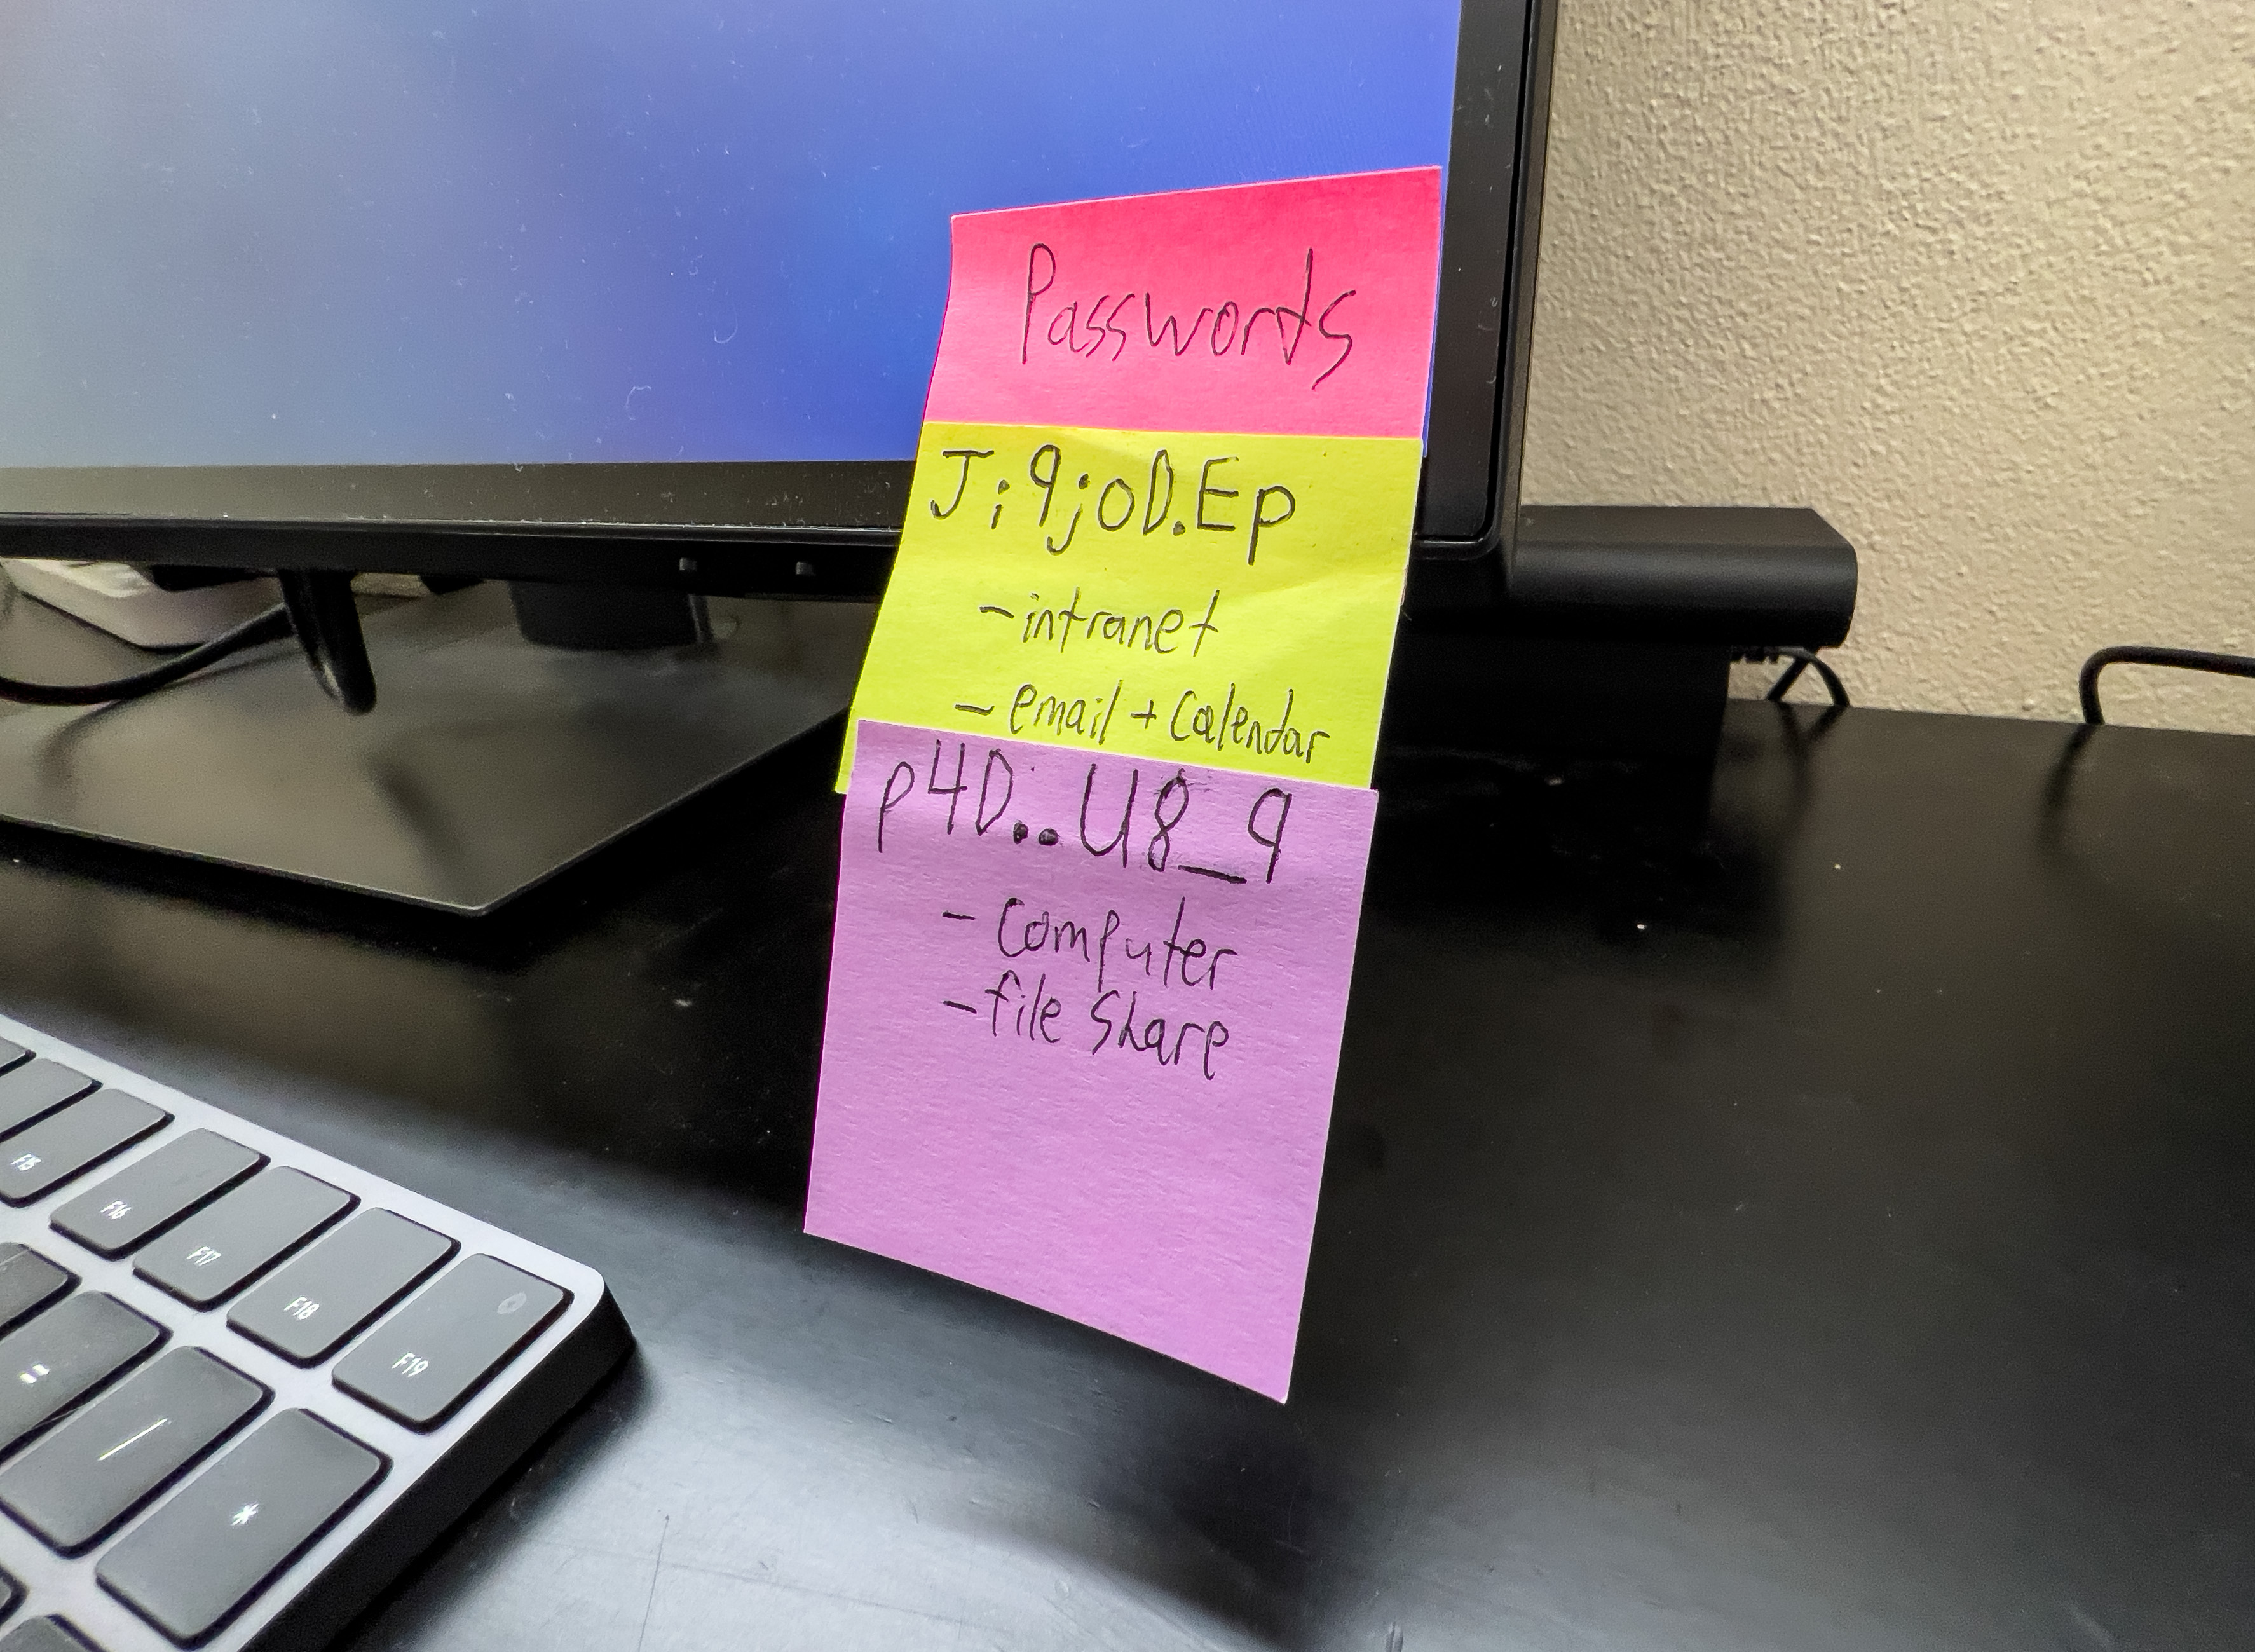 Passwords
Ji9joD.Ep
-intranet
- email + Calendar
p4D..U8_9
- Computer
-file share
F15
F16
F17
F18
F19
=
/
*